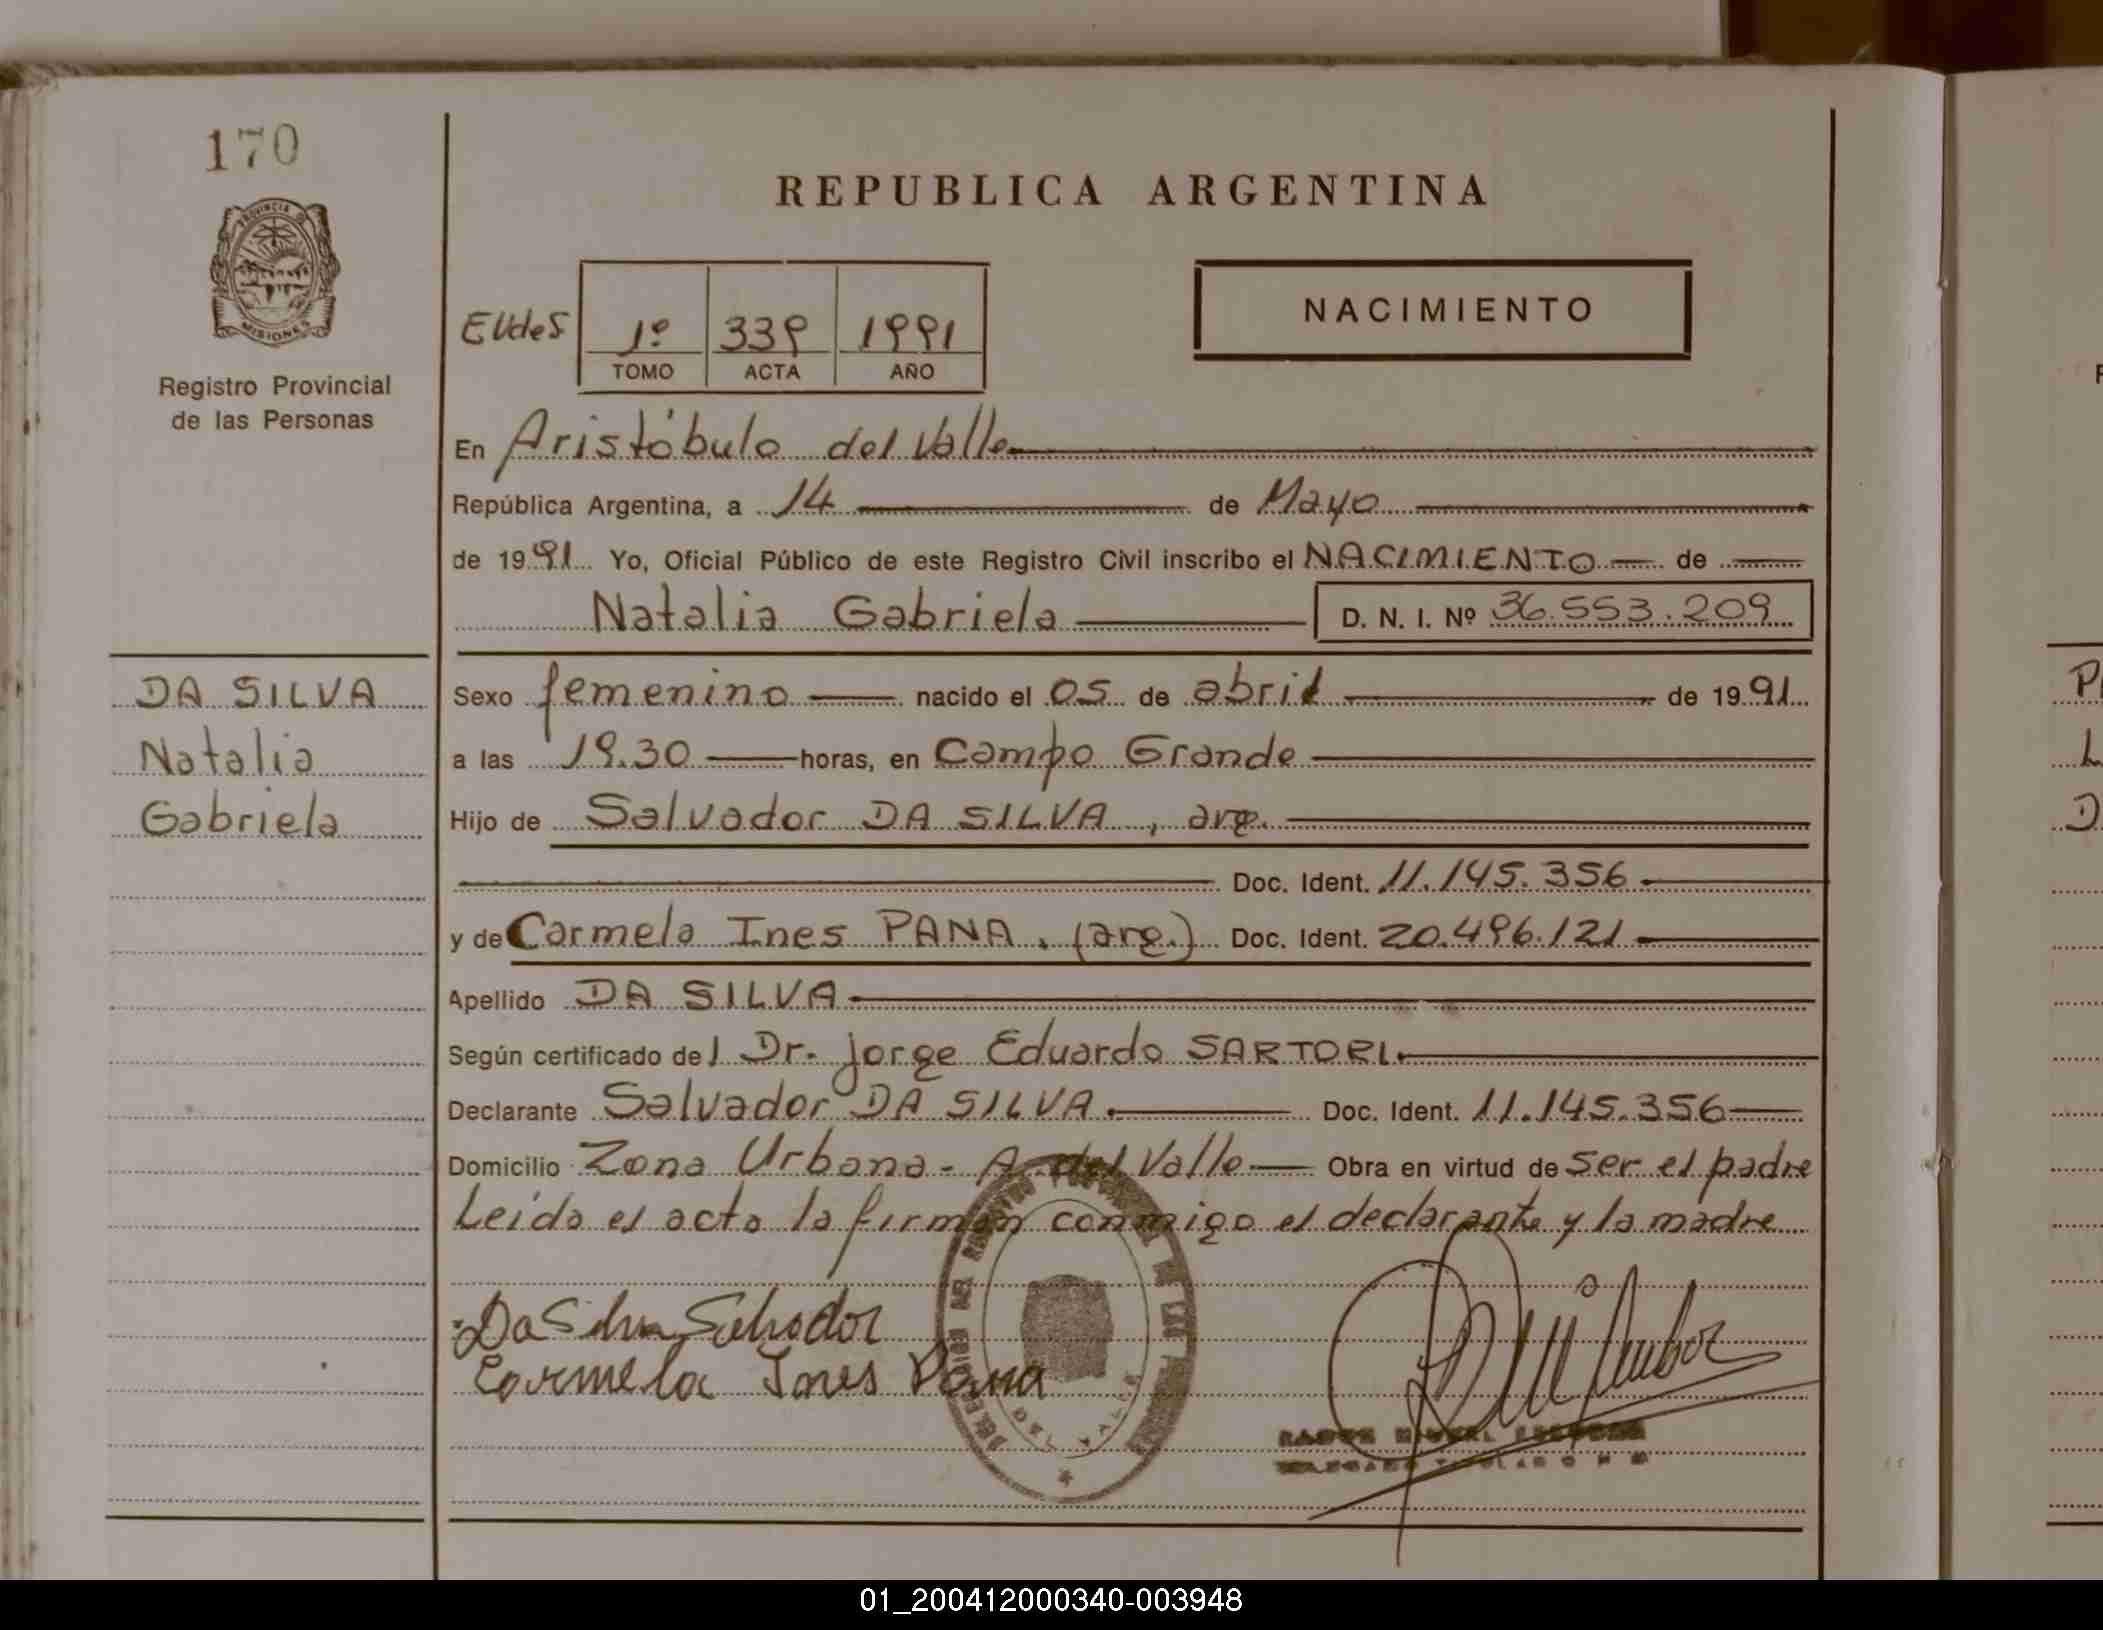 170
REPUBLICA ARGENTINA
PROVINCIA DE
MISIONES
Registro Provincial
de las Personas
EUdes
1º 339 1991
TOMO ACTA AÑO
NACIMIENTO
En Aristóbulo del Valle
República Argentina, a 14 de Mayo
de 1991 Yo, Oficial Público de este Registro Civil inscribo el NACIMIENTO de
Natalia Gabriela D. N. I. Nº 36.553.209
DA SILVA
Natalia
Gabriela
Sexo femenino nacido el 05 de abril de 1991
a las 19.30 horas, en Campo Grande
Hijo de Salvador DA SILVA, arg.
Doc. Ident. 11.145.356
y de Carmela Ines PANA. (arg.) Doc. Ident. 20.496.121
Apellido DA SILVA
Según certificado del Dr. Jorge Eduardo SARTORI.
Declarante Salvador DA SILVA. Doc. Ident. 11.145.356
Domicilio Zona Urbana - A. del Valle Obra en virtud de ser el padre
Leida el acta la firman conmigo el declarante y la madre
Da Silva Salvador
Carmela Ines Pana
DELEGACION DEL REGISTRO PROVINCIAL DE LAS PERSONAS
DEL VALLE
01_200412000340-003948